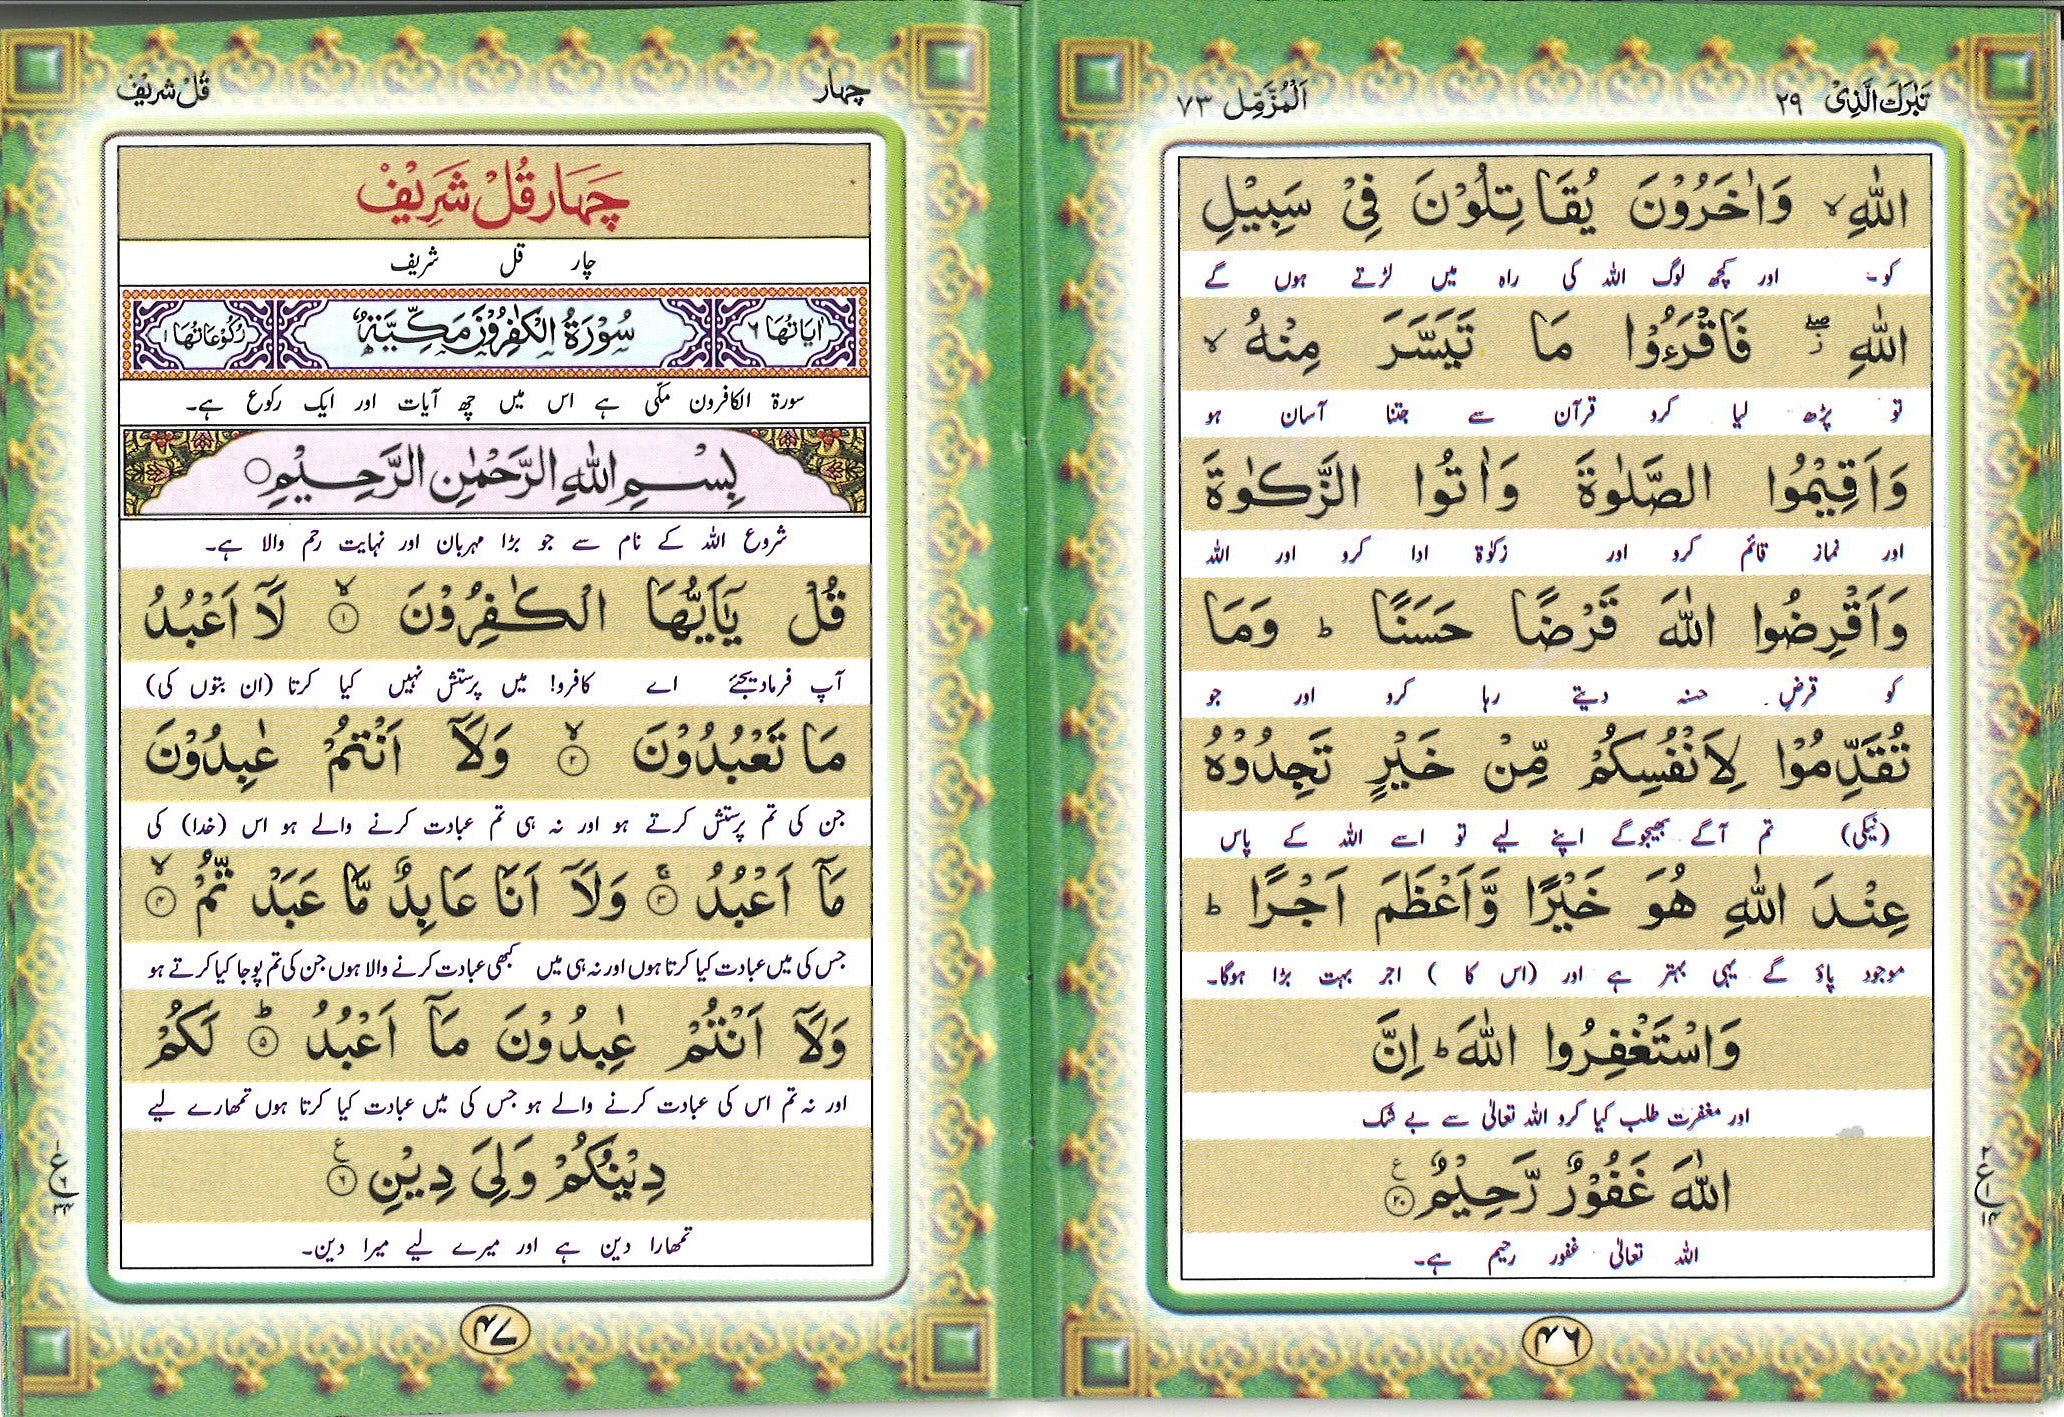 تَبٰرَكَ الَّذِیْ ٢٩
اَلْمُزَّمِّل ٧٣
اللّٰهِ ۙ وَاٰخَرُوْنَ یُقَاتِلُوْنَ فِیْ سَبِیْلِ
کو۔ اور کچھ لوگ اللہ کی راہ میں لڑتے ہوں گے
اللّٰهِ ۖز فَاقْرَءُوْا مَا تَیَسَّرَ مِنْهُ ۙ
تو پڑھ لیا کرو قرآن سے جتنا آسان ہو
وَاَقِیْمُوا الصَّلٰوةَ وَاٰتُوا الزَّكٰوةَ
اور نماز قائم کرو اور زکوٰۃ ادا کرو اور اللہ
وَاَقْرِضُوا اللّٰهَ قَرْضًا حَسَنًا ؕ وَمَا
کو قرضِ حسنہ دیتے رہا کرو اور جو
تُقَدِّمُوْا لِاَنْفُسِكُمْ مِّنْ خَیْرٍ تَجِدُوْهُ
(نیکی) تم آگے بھیجوگے اپنے لیے تو اسے اللہ کے پاس
عِنْدَ اللّٰهِ هُوَ خَیْرًا وَّاَعْظَمَ اَجْرًا ؕ
موجود پاؤ گے یہی بہتر ہے اور (اس کا ) اجر بہت بڑا ہوگا۔
وَاسْتَغْفِرُوا اللّٰهَ ؕ اِنَّ
اور مغفرت طلب کیا کرو اللہ تعالیٰ سے بے شک
اللّٰهَ غَفُوْرٌ رَّحِیْمٌ ۧ ﴿٢٠﴾
اللہ تعالیٰ غفور رحیم ہے۔
۴۶
چہار
قُلْ شریف
چَہَار قُلْ شَرِیْفْ
چار قل شریف
اٰیَاتُهَا ٦ سُوْرَةُ الْكٰفِرُوْنَ مَكِّیَّةٌ رُكُوْعَاتُهَا ١
سورۃ الکافرون مکّی ہے اس میں چھ آیات اور ایک رکوع ہے۔
بِسْمِ اللّٰهِ الرَّحْمٰنِ الرَّحِیْمِ
شروع اللہ کے نام سے جو بڑا مہربان اور نہایت رحم والا ہے۔
قُلْ یٰۤاَیُّهَا الْكٰفِرُوْنَ ۙ ﴿١﴾ لَاۤ اَعْبُدُ
آپ فرمادیجئے اے کافرو! میں پرستش نہیں کیا کرتا (ان بتوں کی)
مَا تَعْبُدُوْنَ ۙ ﴿٢﴾ وَلَاۤ اَنْتُمْ عٰبِدُوْنَ
جن کی تم پرستش کرتے ہو اور نہ ہی تم عبادت کرنے والے ہو اس (خدا) کی
مَاۤ اَعْبُدُ ۚ ﴿٣﴾ وَلَاۤ اَنَا عَابِدٌ مَّا عَبَدْ تُّمْ ۙ ﴿٤﴾
جس کی میں عبادت کیا کرتا ہوں اور نہ ہی میں کبھی عبادت کرنے والا ہوں جن کی تم پوجا کیا کرتے ہو
وَلَاۤ اَنْتُمْ عٰبِدُوْنَ مَاۤ اَعْبُدُ ؕ ﴿٥﴾ لَكُمْ
اور نہ تم اس کی عبادت کرنے والے ہو جس کی میں عبادت کیا کرتا ہوں تمھارے لیے
دِیْنُكُمْ وَلِیَ دِیْنِ ۧ ﴿٦﴾
تمھارا دین ہے اور میرے لیے میرا دین۔
۴۷